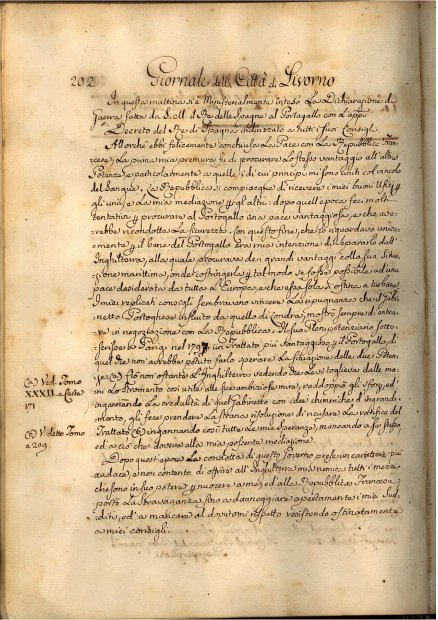 202. Giornale della Città di Livorno
In questa mattina si è Ministerialmente inteso La Dichiarazione di
Guerra fatta da S. M. il Re della Spagna al Portogallo con l'app.º
Decreto del Re di Spagna indirizzato a tutti i suoi Consigli
Allorchè ebbi felicemente conchiusa La Pace con La Repubblica Fran:
cese, La prima mia premura fu di procurare Lo stesso vantaggio all'altre
Potenze, e particolarmente a quelle, i di cui principi mi sono uniti col vincolo
del Sangue. La Repubblica si compiacque di ricevere i miei buoni Ufizj p
gli uni, e La mia mediazione p gli altri: dopo quell'epoca feci molti
tentativi p procurare al Portogallo una pace vantaggiosa, e che avre:
:rebbe ricondotta La sicurezza. Con questo fine, che riguardava unica:
:mente p il bene del Portogallo era mia intenzione di separarlo dall'
Inghilterra, alla quale procurava dei grandi vantaggi colla sua Situa:
:zione marittima, onde costringerla p tal modo se fosse possibile ad una
pace desiderata da tutta L'Europa, e che essa sola si ostina a turbare
I miei replicati consigli sembravano vincere La ripugnanza che il Gabi:
netto Portoghese influito da quello di Londra, mostrò sempre di entra:
:re in negoziazione con La Repubblica. Il suo Plenipotenziario sotto:
:scrisse in Parigi nel 1797 un Trattato più vantaggioso p il Portogallo, di
quel che non avrebbe potuto farlo sperare La situazione delle due Poten:
:ze (a) Ciò non ostante L'Inghilterra vedendo che Le si toglieva dalle ma:
ni Lo stromento così utile alle sue ambiziose mire, raddoppiò gli sforzi, ed
ingannando La credulità di quel Gabinetto con idee chimeriche d'ingrandi:
mento, gli fece prendere La strana risoluzione di ricusare La ratifica del
Trattato (b) ingannando così tutte Le mie speranze, mancando a se stesso,
ed a ciò che doveva alla mia possente mediazione.
Dopo quest'epoca La condotta di questo Governo prese un carattere più
audace, e non contento di offrire all'Inghilterra mia nemica tutti i mezzi
che sono in suo potere p nuocere a me, ed alla Repubblica Francese
portò La stravaganza fino a danneggiare apertamente i miei Sud:
diti, ed a mancare al dovutomi rispetto resistendo ostinatamente
a miei consigli.
(a) Ved. Tomo
XXXII. a Carte
171
(b) V. detto Tomo
a 209